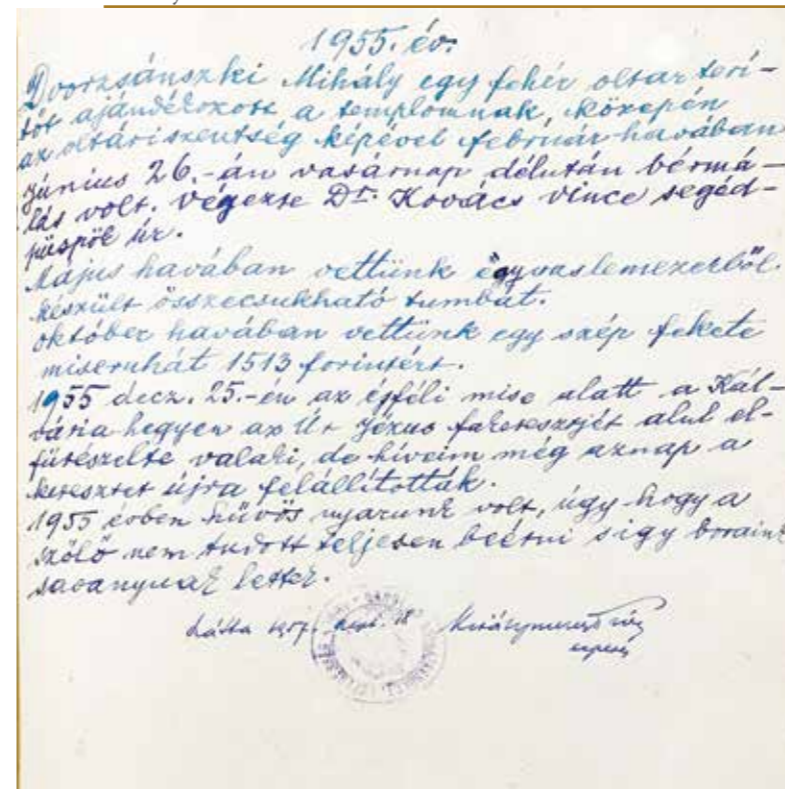 1955. év.
Dvorzsánszki Mihály egy fehér oltarterí-
tőt ajándékozott a templomnak, közepén
az oltáriszentség képével február havában
Június 26.-án vasárnap délután bérmá-
lás volt. Végezte Dr. Kovács Vince segéd-
püspök úr.
Május havában vettünk egy vaslemezekből
készült összecsukható tumbát.
október havában vettünk egy szép fekete
miseruhát 1513 forintért.
1955 decz. 25.-én az éjféli mise alatt a Kál-
vária hegyen az Úr Jézus fakeresztjét alul el-
fűrészelte valaki, de híveim még aznap a
keresztet újra felállították.
1955 évben hűvös nyarunk volt, úgy hogy a
szőlő nem tudott teljesen beérni s így boraink
savanyúak lettek.
Látta 1957. 18